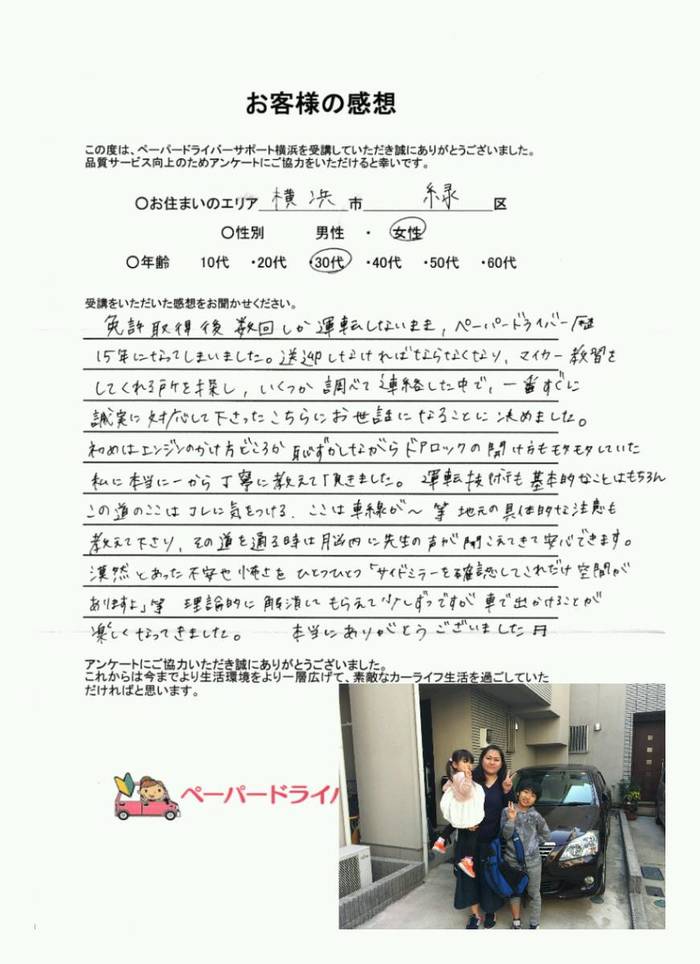 お客様の感想
この度は、ペーパードライバーサポート横浜を受講していただき誠にありがとうございました。
品質サービス向上のためアンケートにご協力をいただけると幸いです。
〇お住まいのエリア 横浜 市 緑 区
〇性別 男性 ・ 女性
〇年齢 10代 ・20代 ・30代 ・40代 ・50代 ・60代
受講をいただいた感想をお聞かせください。
免許取得後数回しか運転しないまま、ペーパードライバー歴
15年になってしまいました。送迎しなければならなくなり、マイカー教習を
してくれる所を探し、いくつか調べて連絡した中で、一番すぐに
誠実に対応して下さったこちらにお世話になることに決めました。
初めはエンジンのかけ方どころか恥ずかしながらドアロックの開け方もモタモタしていた
私に本当に一から丁寧に教えて頂きました。運転技術も基本的なことはもちろん
この道のここはコレに気をつける、ここは車線が〜 等 地元の具体的な注意も
教えて下さり、その道を通る時は脳内に先生の声が聞こえてきて安心できます。
漠然とあった不安や怖さをひとつひとつ「サイドミラーを確認してこれだけ空間が
ありますよ」等 理論的に解消してもらえて少しずつですが車で出かけることが
楽しくなってきました。 本当にありがとうございました
アンケートにご協力いただき誠にありがとうございました。
これからは今までより生活環境をより一層広げて、素敵なカーライフ生活を過ごしていた
だければと思います。
ペーパードライバ